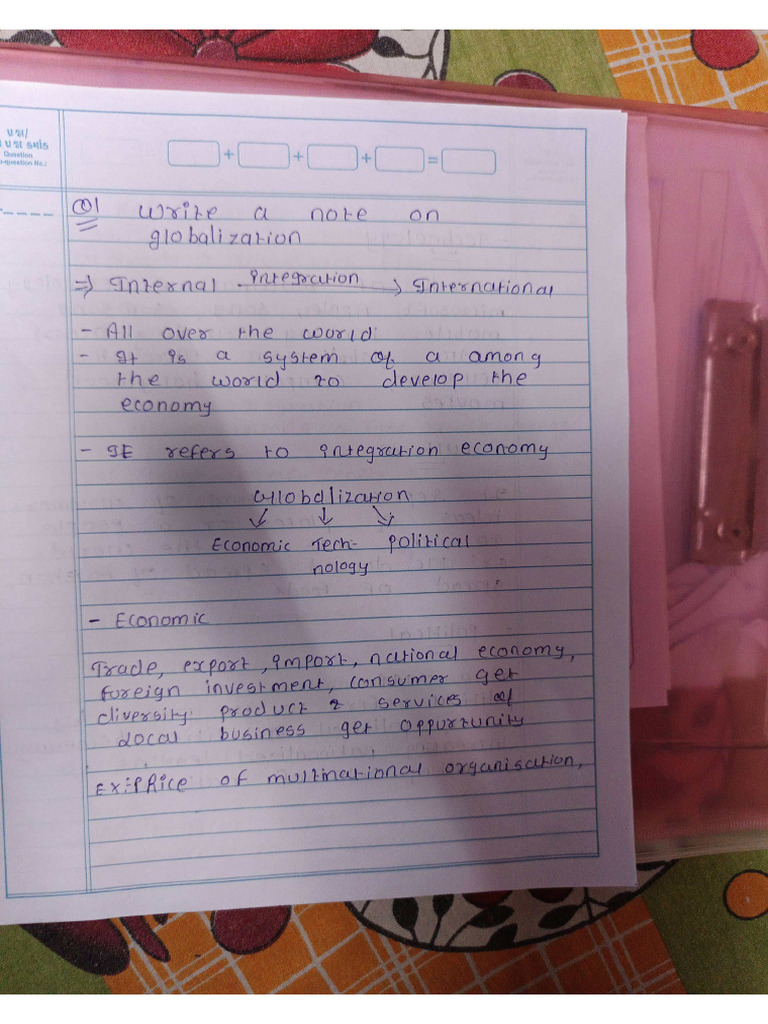 Question
+ + + =
Q1 Write a note on
globalization
⇒ Internal integration → International
- All over the world
- It is a system of a among
the world to develop the
economy
- It refers to integration economy
Globalization
↙ ↓ ↘
Economic Tech- Political
nology
- Economic
Trade, export, import, national economy,
foreign investment, consumer get
diversity product & services of
Local business get oppurtunity
Ex: Price of multinational organisation,